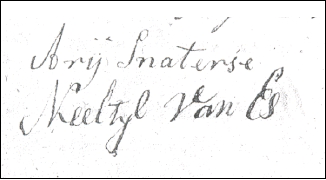 Arij Snaterse
Neeltyl Van Es